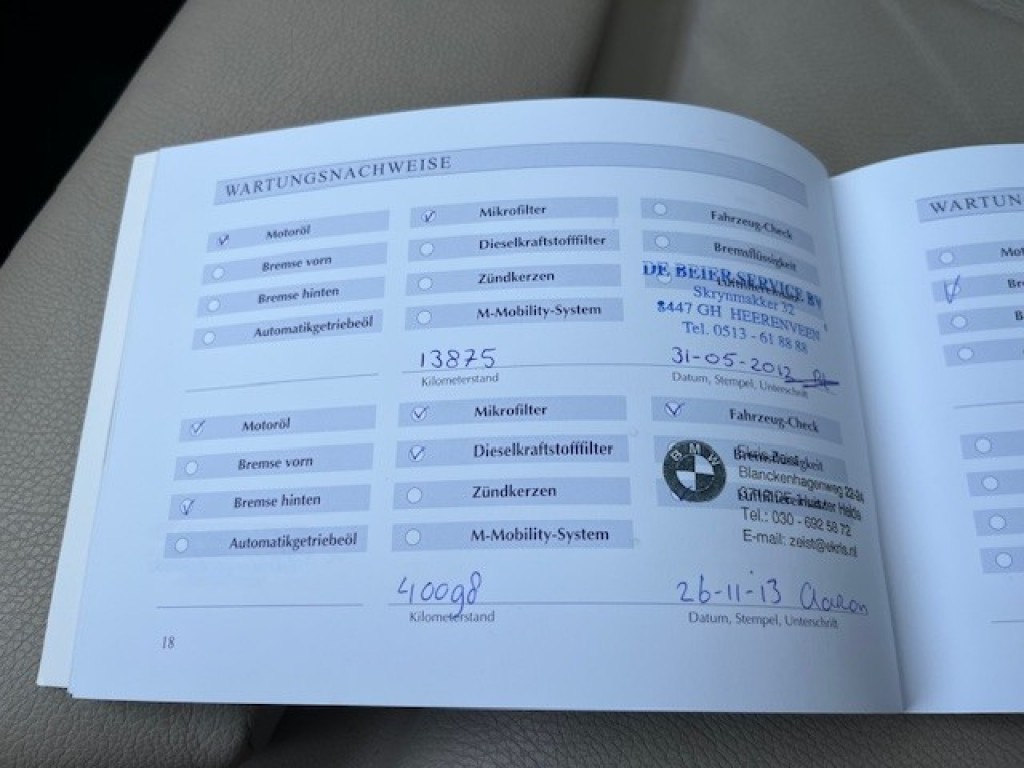 WARTUNGSNACHWEISE
Motoröl
Mikrofilter
Fahrzeug-Check
Bremse vorn
Dieselkraftstofffilter
Bremsflüssigkeit
Bremse hinten
Zündkerzen
Automatikgetriebeöl
M-Mobility-System
DE BEIER SERVICE BV
Skrynmakker 32
8447 GH HEERENVEEN
Tel. 0513 - 61 88 88
13875
31-05-2012
Kilometerstand
Datum, Stempel, Unterschrift
Motoröl
Mikrofilter
Fahrzeug-Check
Bremse vorn
Dieselkraftstofffilter
Bremse hinten
Zündkerzen
Automatikgetriebeöl
M-Mobility-System
BMW
Blanckenhagenweg 22-24
Tel.: 030 - 692 58 72
E-mail: zeist@ekris.nl
40098
26-11-13 Aaron
Kilometerstand
Datum, Stempel, Unterschrift
18
WARTUN
Mot
Br
B